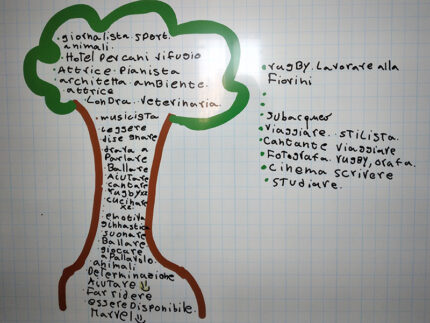 • giornalista. sport.
animali.
• Hotel per cani rifugio
• Attrice. Pianista
• architetta. ambiente.
attrice
• Londra. Veterinaria.
• musicista
leggere
disegnare
brava a
Parlare
Ballare
Aiutare
cantare
rugby x2
cucinare
x2.
• emotiva
ginnastica
suonare
Ballare
giocare
a Pallavolo.
animali
Determinazione
Aiutare
Far ridere
essere Disponibile.
Marvel
• rugby. Lavorare alla
Fiorini
•
•
• subacqueo
• viaggiare. stilista.
• Cantante viaggiare
• Fotografa. rugby, orafa.
• cinema scrivere
• studiare.